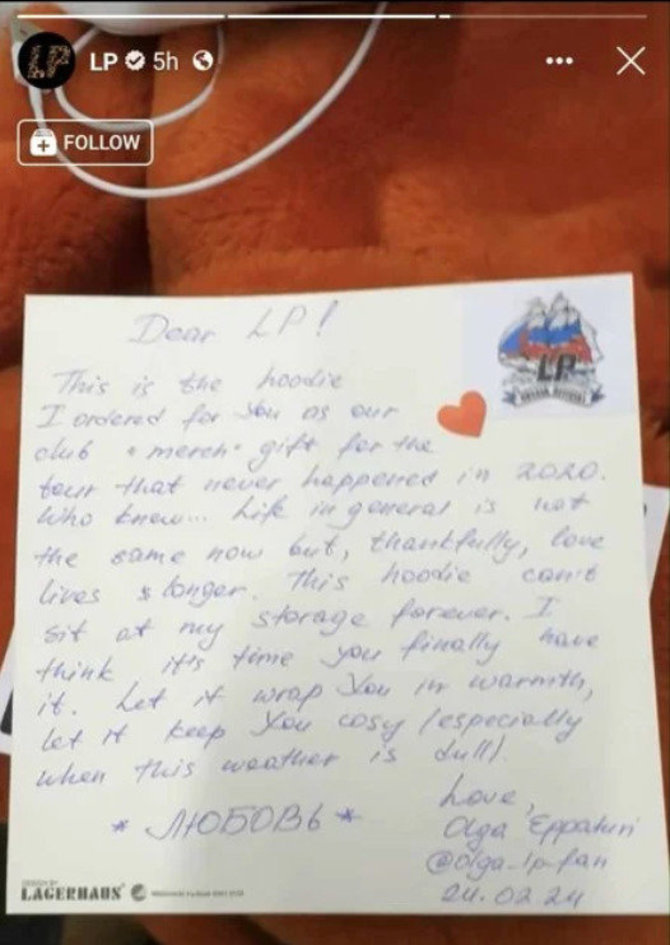 LP 5h
FOLLOW
Dear LP!
This is the hoodie
I ordered for You as our
club "merch" gift for the
tour that never happened in 2020.
Who knew... Life in general is not
the same now but, thankfully, love
lives longer. This hoodie can't
sit at my storage forever. I
think it's time you finally have
it. Let it wrap You in warmth,
let it keep You cosy (especially
when this weather is dull).
* ЛЮБОВЬ *
Love,
Olga
@olga_lp_fan
24.02.24
LP
DESIGN BY
LAGERHAUS